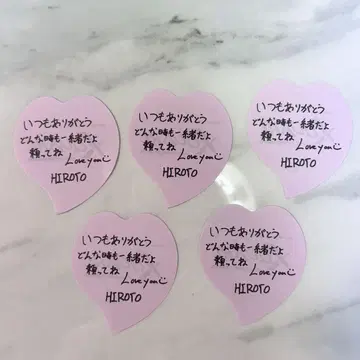 いつもありがとう
どんな時も一緒だよ
頼ってね Love you
HIROTO
いつもありがとう
どんな時も一緒だよ
頼ってね Love you
HIROTO
いつもありがとう
どんな時も一緒だよ
頼ってね Love you
HIROTO
いつもありがとう
どんな時も一緒だよ
頼ってね Love you
HIROTO
いつもありがとう
どんな時も一緒だよ
頼ってね Love you
HIROTO